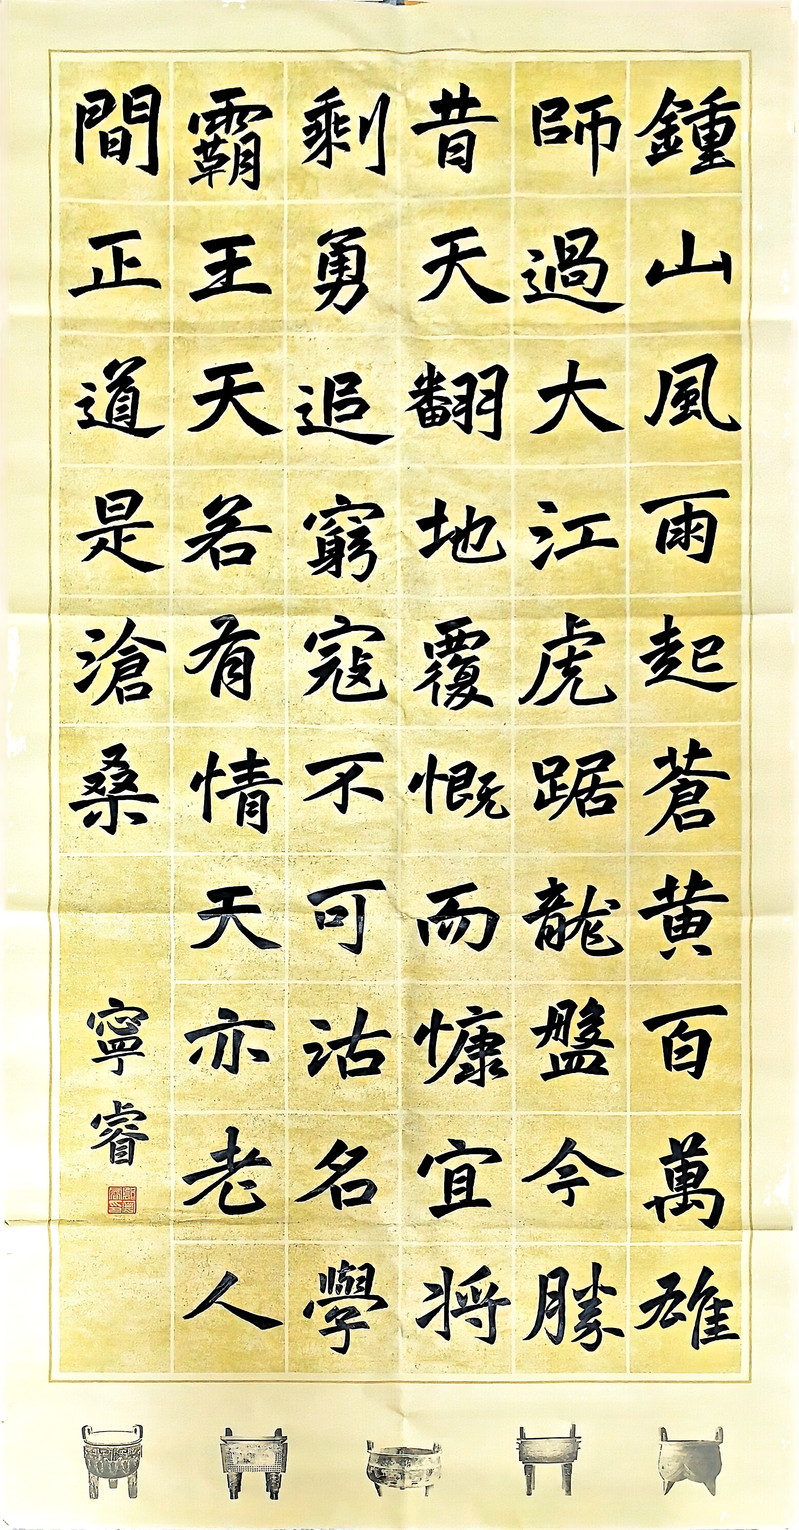 鍾山風雨起蒼黄百萬雄
師過大江虎踞龍盤今勝
昔天翻地覆慨而慷宜將
剩勇追窮寇不可沽名學
霸王天若有情天亦老人
間正道是滄桑
寧睿